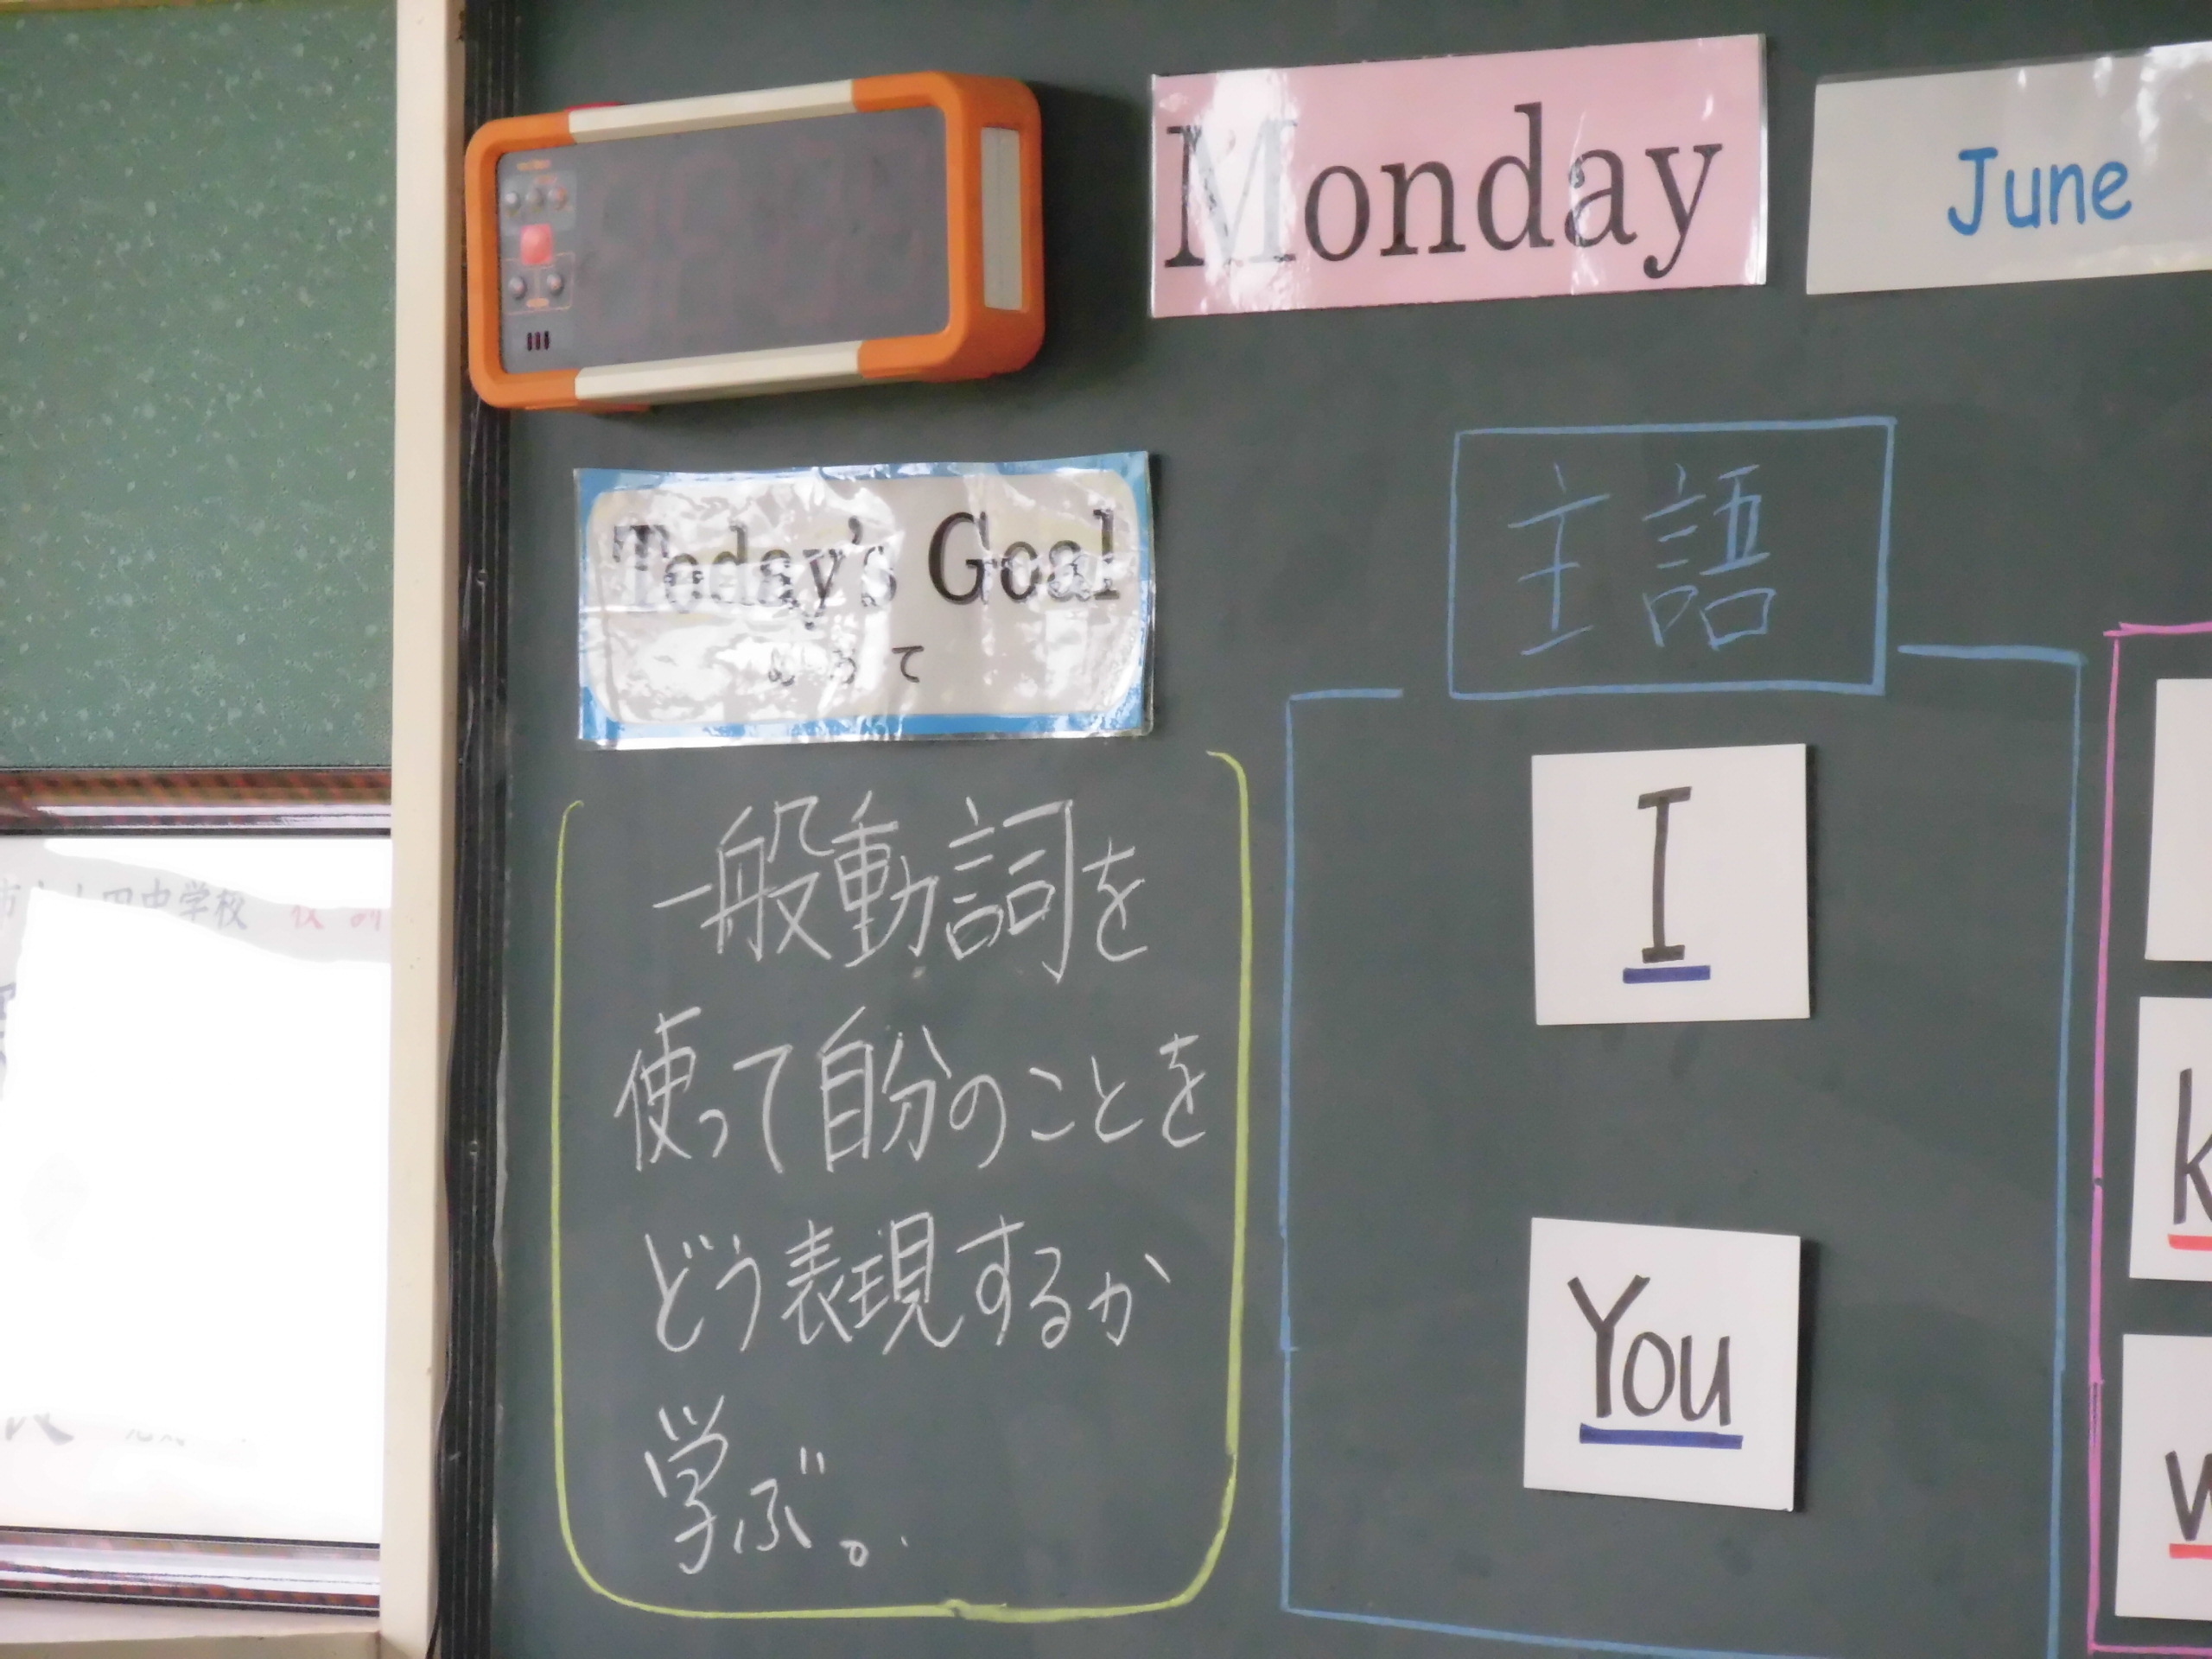 Monday
June
Today's Goal
めあて
一般動詞を
使って自分のことを
どう表現するか
学ぶ。
主語
I
You
中学校